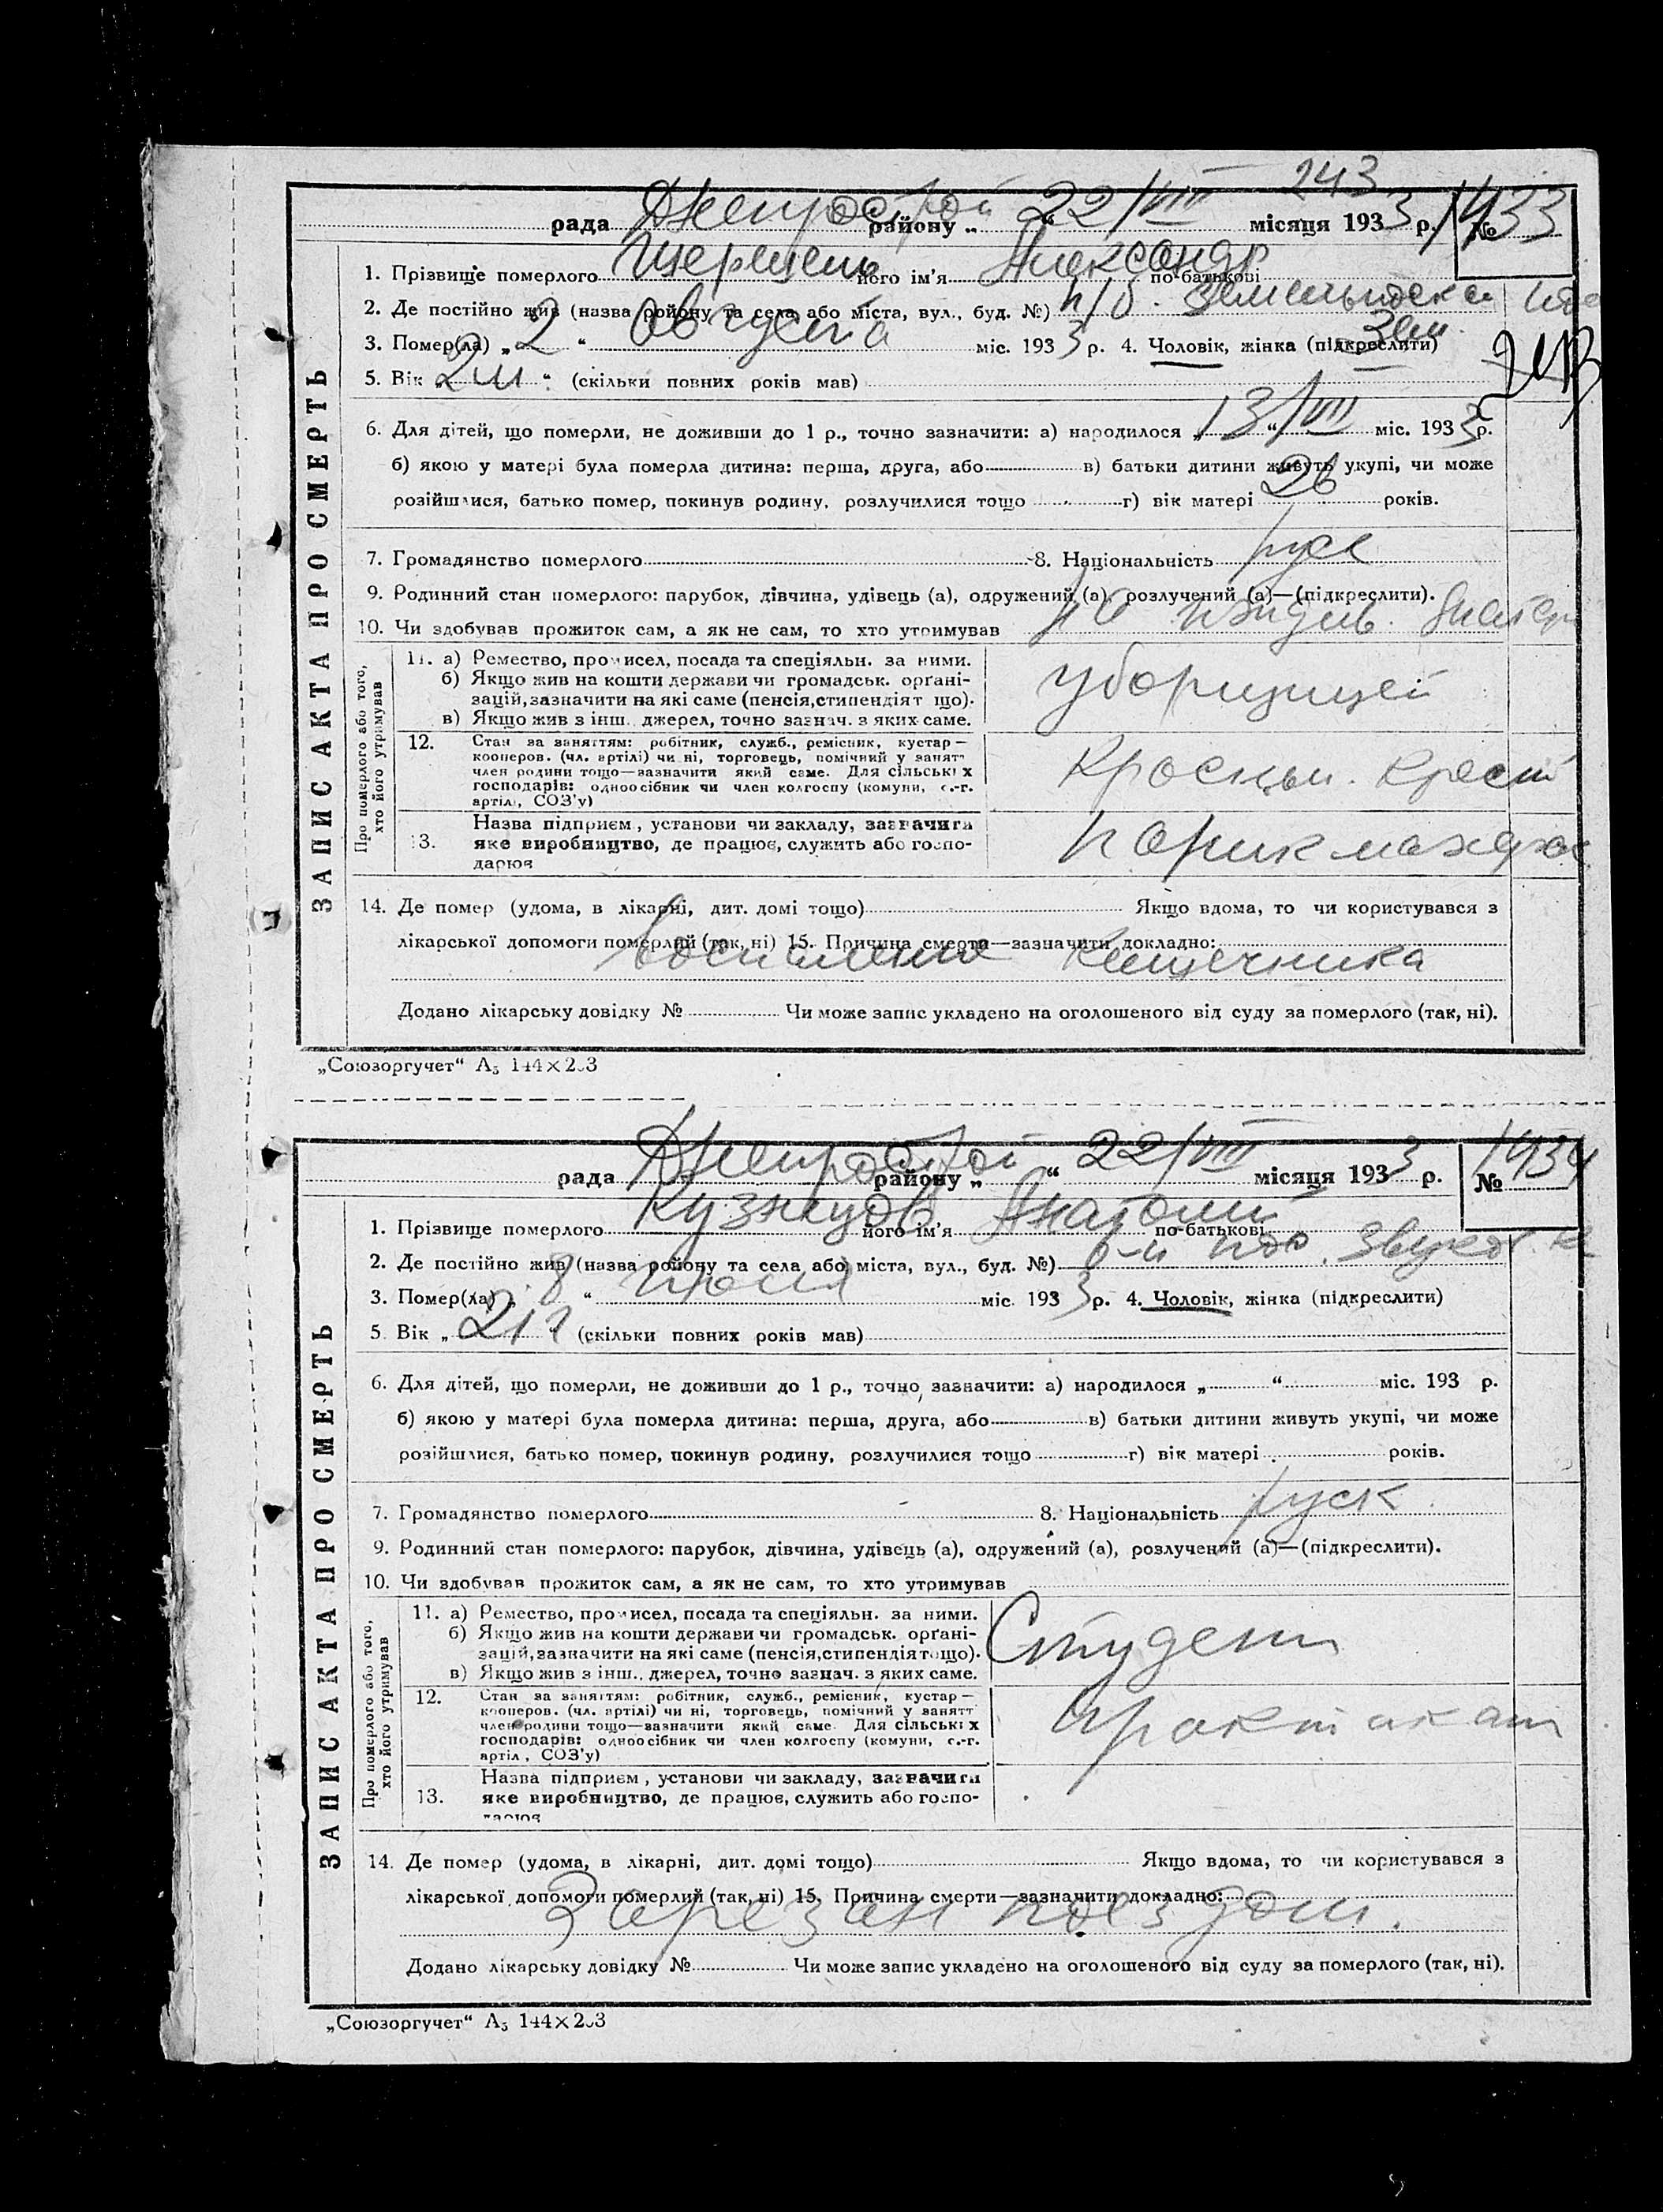 243
рада Днепрострой району „ “ 22/VIII місяця 1933 р. № 1433
1. Прізвище померлого його ім’я Александр по-батькові
2. Де постійно жив (назва району та села або міста, вул., буд. №) п/о.
3. Помер(ла) „ 2 “ августа міс. 1933 р. 4. Чоловік, жінка (підкреслити)
5. Вік „ 2 м “ (скільки повних років мав)
6. Для дітей, що померли, не доживши до 1 р., точно зазначити: а) народилося „ 13/VII “ міс. 1933 р.
б) якою у матері була померла дитина: перша, друга, або в) батьки дитини живуть укупі, чи може
розійшлися, батько помер, покинув родину, розлучилися тощо г) вік матері 26 років.
7. Громадянство померлого 8. Національність руск
9. Родинний стан померлого: парубок, дівчина, удівець (а), одружений (а), розлучений (а)—(підкреслити).
10. Чи здобував прожиток сам, а як не сам, то хто утримував на иждив.
ЗАПИС АКТА ПРО СМЕРТЬ
Про померлого або того, хто його утримував
11. а) Ремество, промисел, посада та спеціяльн. за ними.
б) Якщо жив на кошти держави чи громадськ. органі-
зацій, зазначити на які саме (пенсія, стипендіят що).
в) Якщо жив з інш. джерел, точно зазнач. з яких саме.
уборщицей
12. Стан за заняттям: робітник, служб., ремісник, кустар—
кооперов. (чл. артілі) чи ні, торговець, помічний у занятт
член родини тощо—зазначити який саме. Для сільськіх
господарів: одноосібник чи член колгоспу (комуни, с.-г.
артіл., СОЗ’у)
Красный. Крест
13. Назва підприєм, установи чи закладу, зазначити
яке виробництво, де працює, служить або госпо-
дарює
14. Де помер (удома, в лікарні, дит. домі тощо) Якщо вдома, то чи користувався з
лікарської допомоги померлий (так, ні) 15. Причина смерти—зазначити докладно:
Воспаление Кишечника
Додано лікарську довідку № Чи може запис укладено на оголошеного від суду за померлого (так, ні).
„Союзоргучет“ А5 144×203
рада Днепрострой району „ “ 22/VIII місяця 1933 р. № 1434
1. Прізвище померлого Кузнецов його ім’я Анатолий по-батькові
2. Де постійно жив (назва району та села або міста, вул., буд. №)
3. Помер(ла) „ 8 “ июля міс. 1933 р. 4. Чоловік, жінка (підкреслити)
5. Вік „ 21 г “ (скільки повних років мав)
6. Для дітей, що померли, не доживши до 1 р., точно зазначити: а) народилося „ “ міс. 193 р.
б) якою у матері була померла дитина: перша, друга, або в) батьки дитини живуть укупі, чи може
розійшлися, батько помер, покинув родину, розлучилися тощо г) вік матері років.
7. Громадянство померлого 8. Національність руск
9. Родинний стан померлого: парубок, дівчина, удівець (а), одружений (а), розлучений (а)—(підкреслити).
10. Чи здобував прожиток сам, а як не сам, то хто утримував
ЗАПИС АКТА ПРО СМЕРТЬ
Про померлого або того, хто його утримував
11. а) Ремество, промисел, посада та спеціяльн. за ними.
б) Якщо жив на кошти держави чи громадськ. органі-
зацій, зазначити на які саме (пенсія, стипендіят тощо).
в) Якщо жив з інш., джерел, точно зазнач. з яких саме.
Студент
12. Стан за заняттям: робітник, служб., ремісник, кустар—
кооперов. (чл. артілі) чи ні, торговець, помічний у занятт
член родини тощо—зазначити який саме. Для сільськіх
господарів: одноосібник чи член колгоспу (комуни, с.-г.
артіл, СОЗ’у)
практикант
13. Назва підприєм, установи чи закладу, зазначити
яке виробництво, де працює, служить або госпо-
14. Де помер (удома, в лікарні, дит. домі тощо) Якщо вдома, то чи користувався з
лікарської допомоги померлий (так, ні) 15. Причина смерти—зазначити докладно:
Зарезан поездом.
Додано лікарську довідку № Чи може запис укладено на оголошеного від суду за померлого (так, ні).
„Союзоргучет“ А5 144×203